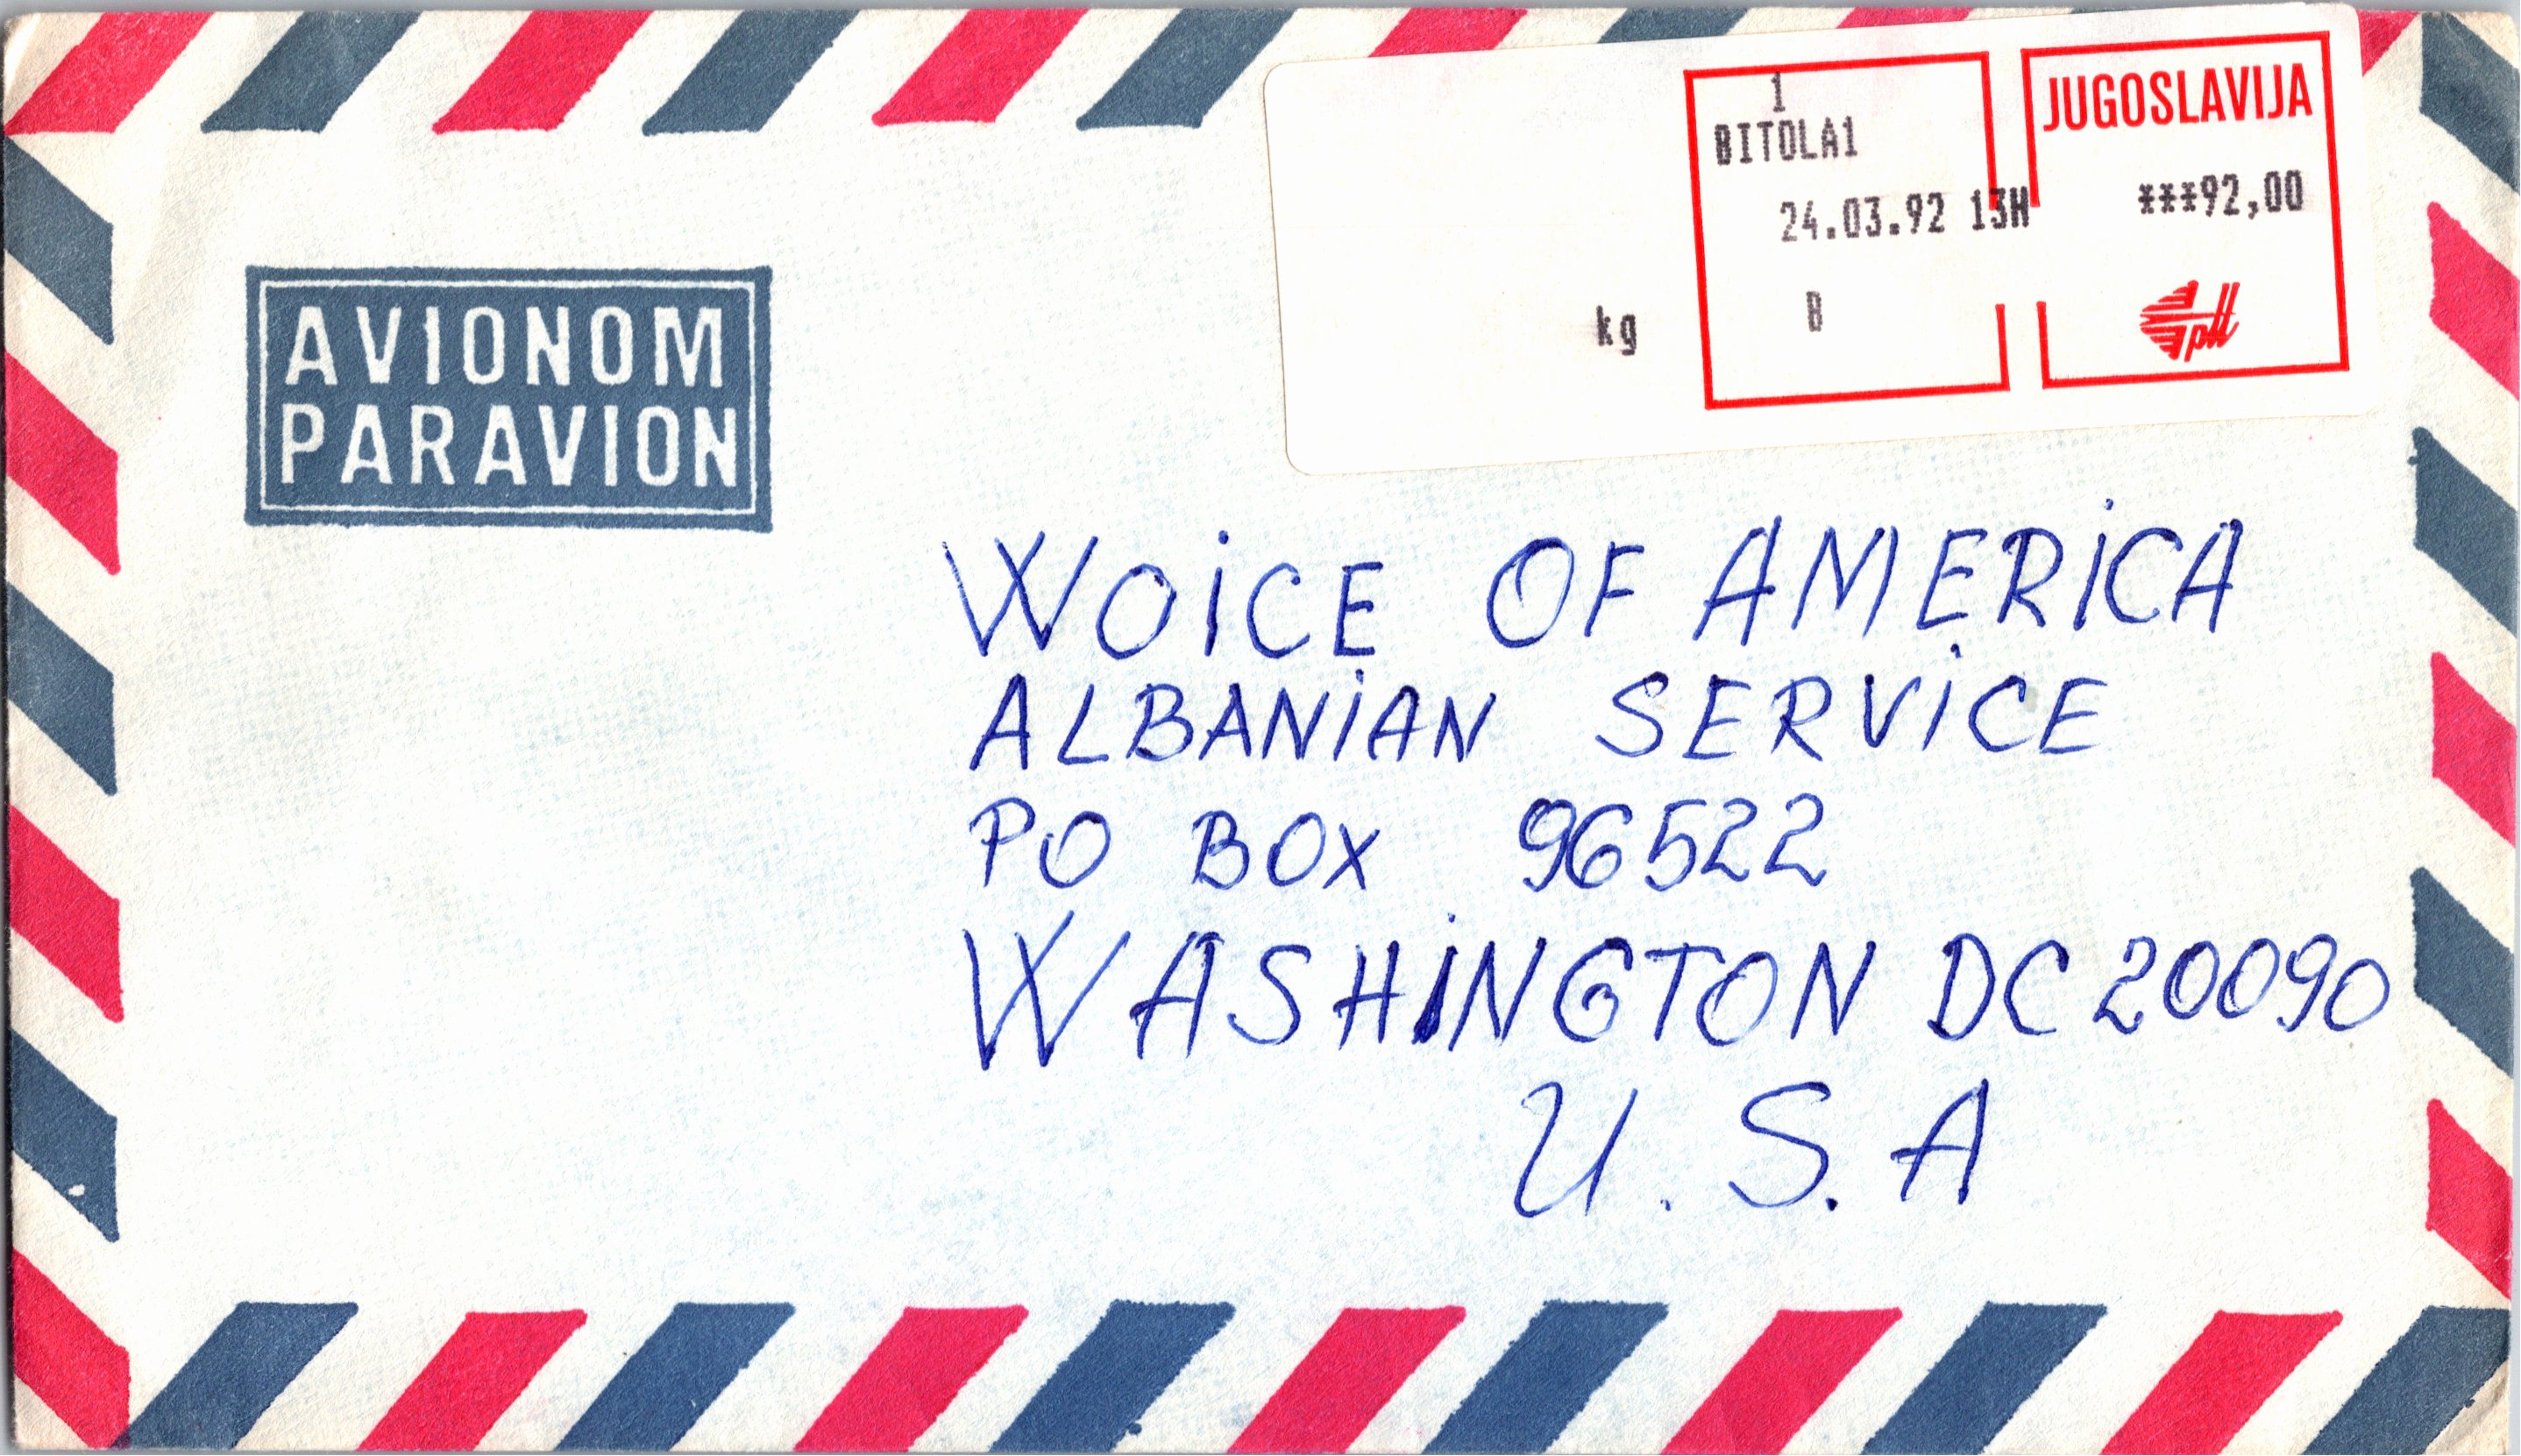 AVIONOM
PARAVION
1
BITOLA1
24.03.92 13H
B
kg
JUGOSLAVIJA
***92,00
ptt
WOICE OF AMERICA
ALBANIAN SERVICE
PO BOX 96522
WASHINGTON DC 20090
U.S.A